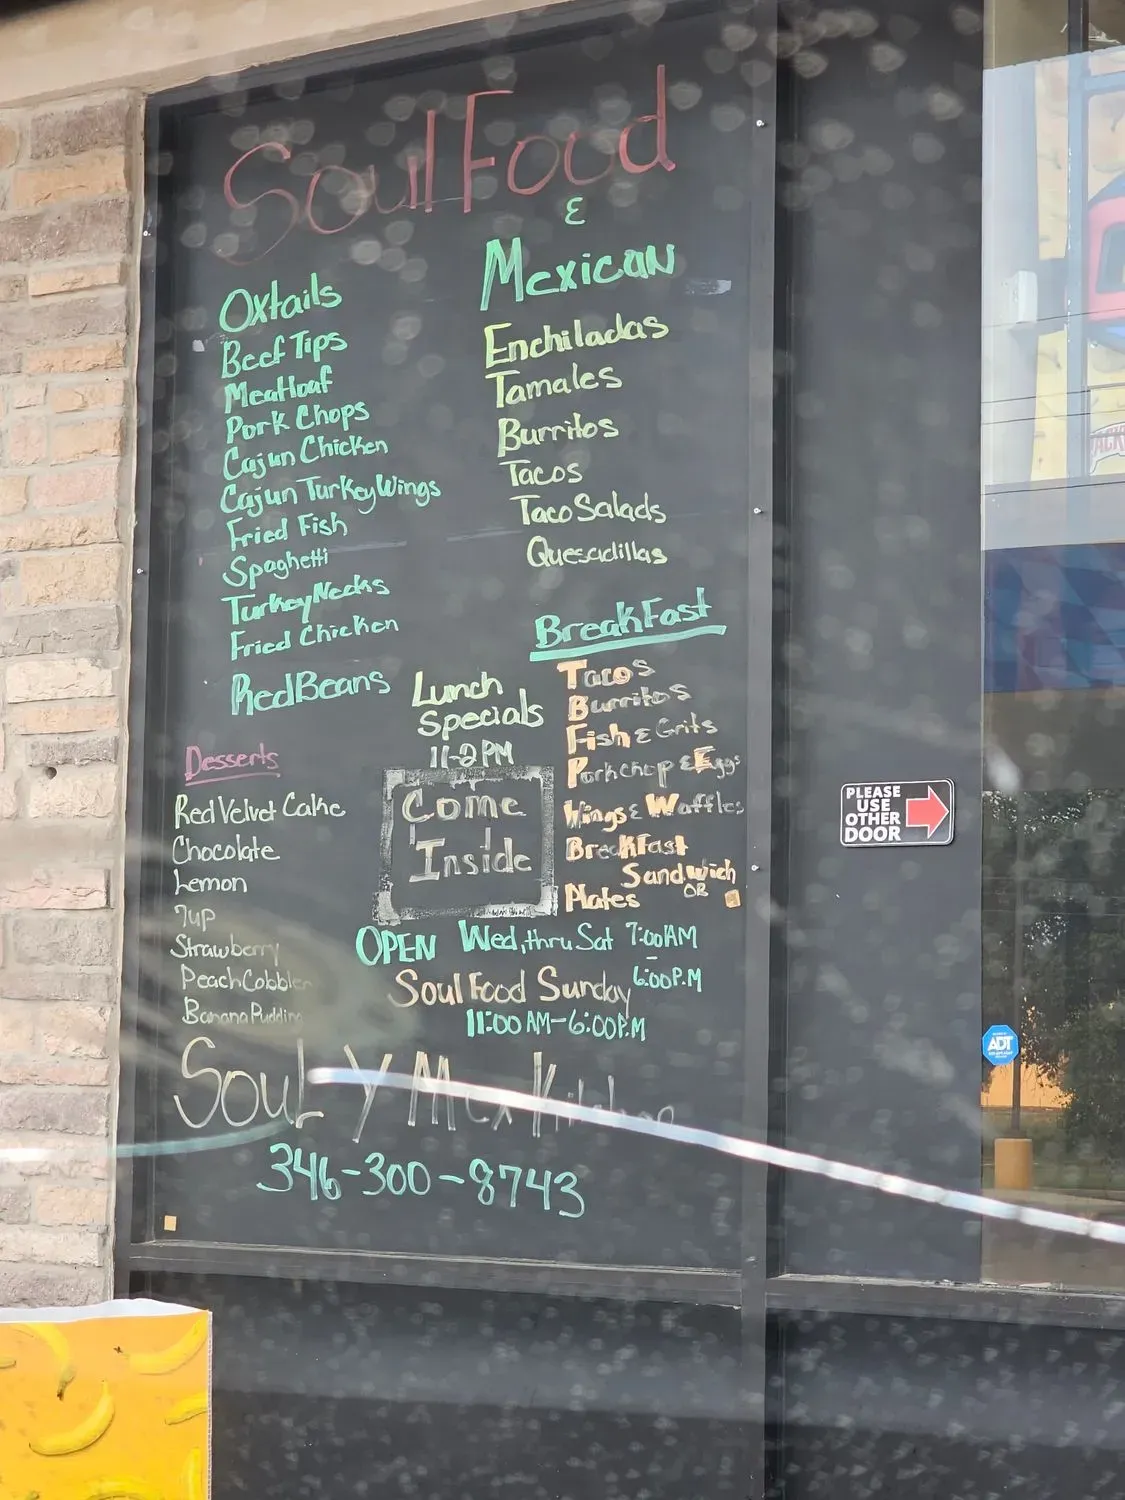 Soul Food
&
Mexican
Oxtails
Beef Tips
Meatloaf
Pork Chops
Cajun Chicken
Cajun Turkey Wings
Fried Fish
Spaghetti
Turkey Necks
Fried Chicken
Red Beans
Enchiladas
Tamales
Burritos
Tacos
Taco Salads
Quesadillas
BreakFast
Tacos
Burritos
Fish & Grits
Porkchop & Eggs
Wings & Waffles
BreakFast
Sandwich
OR
Plates
Lunch
Specials
11-2 PM
Come
Inside
Desserts
Red Velvet Cake
Chocolate
Lemon
7up
Strawberry
Peach Cobbler
Banana Pudding
OPEN Wed, thru Sat 7:00AM
-
6:00P.M
Soul Food Sunday
11:00 AM-6:00P.M
SouL Y Mex Kitchen
346-300-8743
PLEASE
USE
OTHER
DOOR
ADT